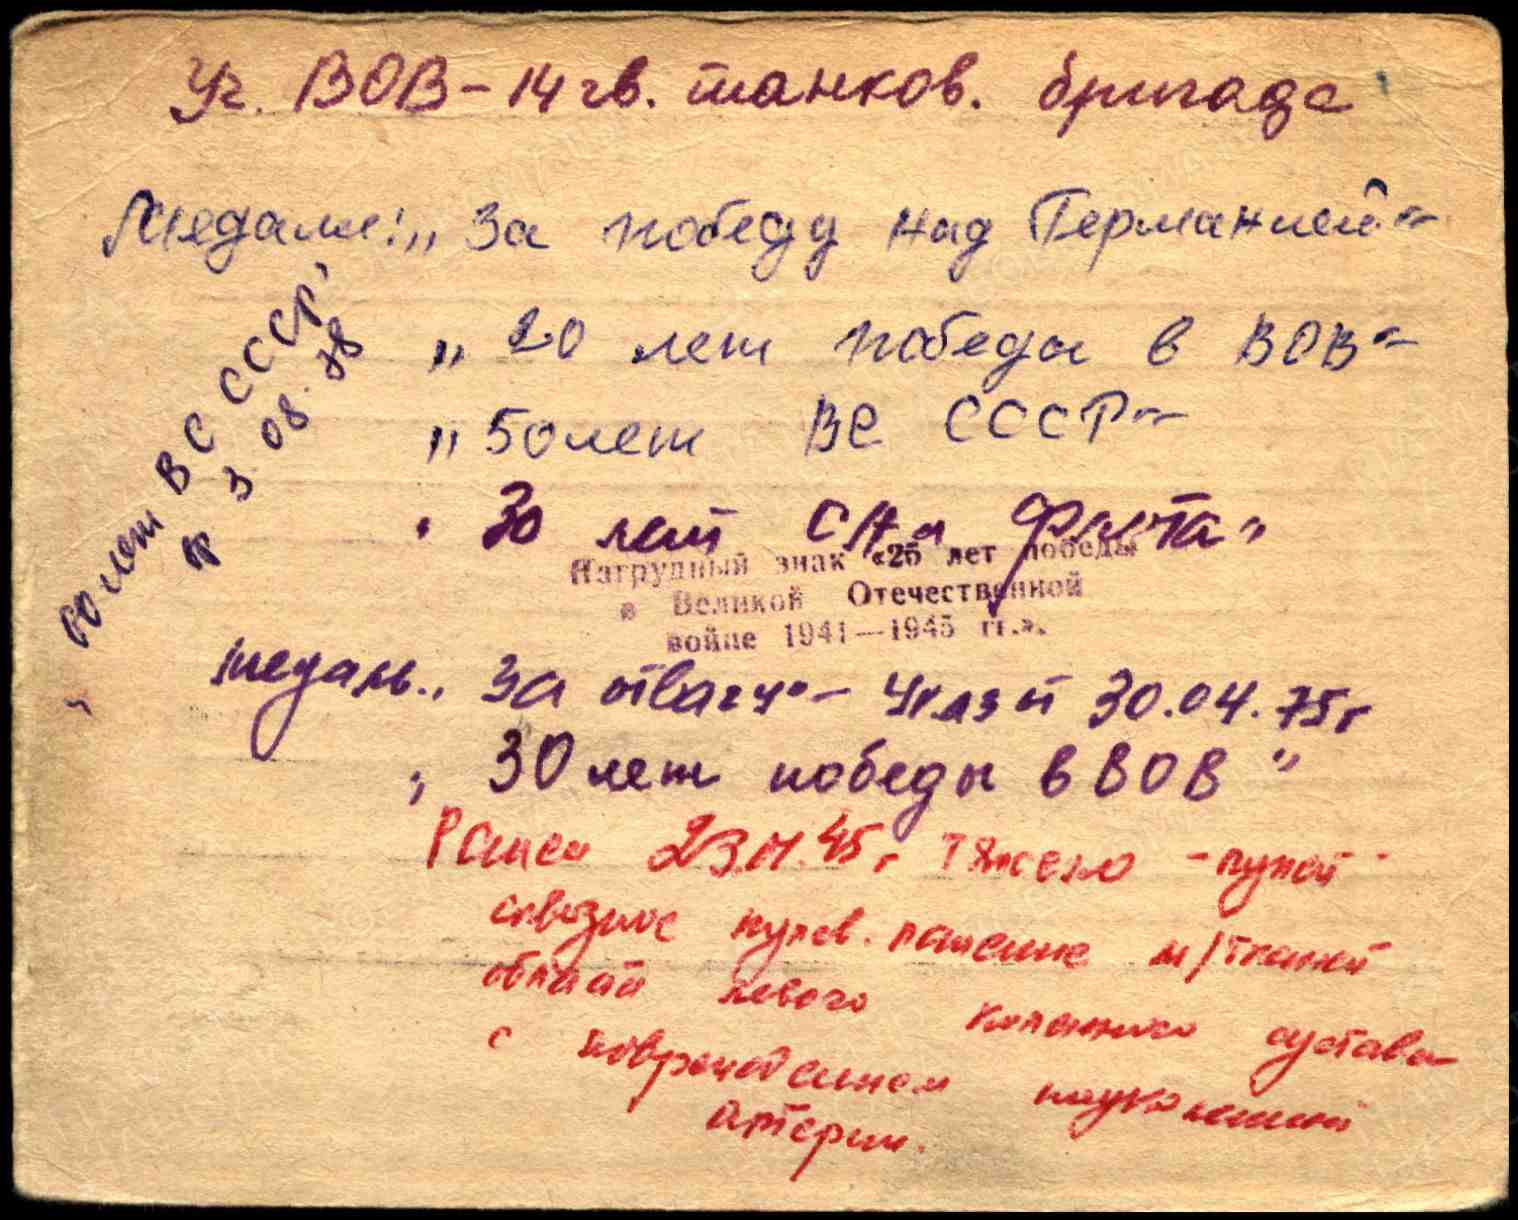 Уч. ВОВ – 14 гв. танков. бригада
Медали: „За победу над Германией"
„20 лет победы в ВОВ"
„50 лет ВС СССР"
„30 лет СА и Флота"
Нагрудный знак «25 лет победы
в Великой Отечественной
войне 1941—1945 гг.».
медаль „За отвагу" – Указ 30.04.75г
„30 лет победы в ВОВ"
60 лет ВС СССР"
3.08.78
Ранен 45г тяжело – пулей
сквозное пулев. ранение м/тканей
области левого коленного сустава
с повреждением подколенной
артерии.